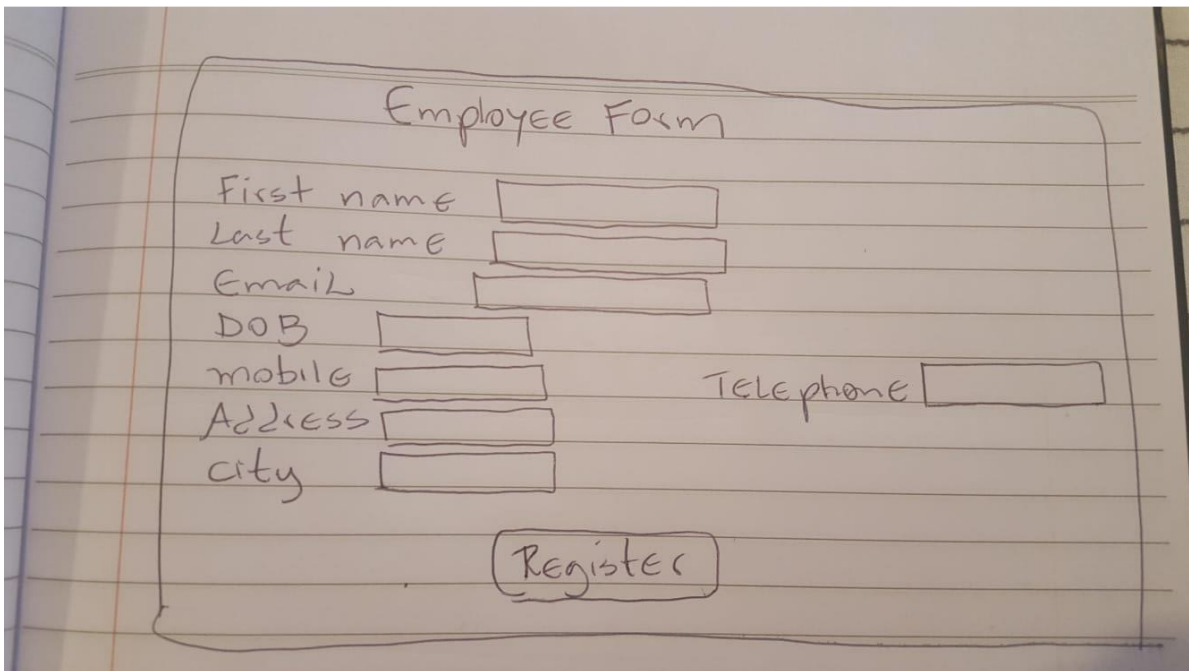 Employee Form
First name
Last name
Email
DOB
mobile Telephone
Address
city
Register